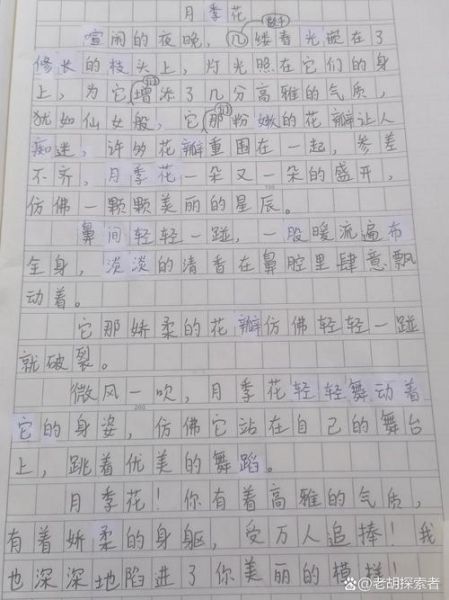 月季花
喧闹的夜晚，几缕春光嵌在了
修长的枝头上，灯光照在它们的身
上，为它们增添了几分高雅的气质，
犹如仙女般，它们那粉嫩的花瓣让人
痴迷，许多花瓣重围在一起，参差
不齐，月季花一朵又一朵的盛开，
仿佛一颗颗美丽的星辰。
鼻间轻轻一碰，一股暖流遍布
全身，淡淡的清香在鼻腔里肆意飘
动着。
它那娇柔的花瓣仿佛轻轻一碰
就破裂。
微风一吹，月季花轻轻舞动着
它的身姿，仿佛它站在自己的舞台
200
上，跳着优美的舞蹈。
月季花！你有着高雅的气质，
有着娇柔的身躯，受万人追捧！我
也深深地陷进了你美丽的模样！
@老胡探索者